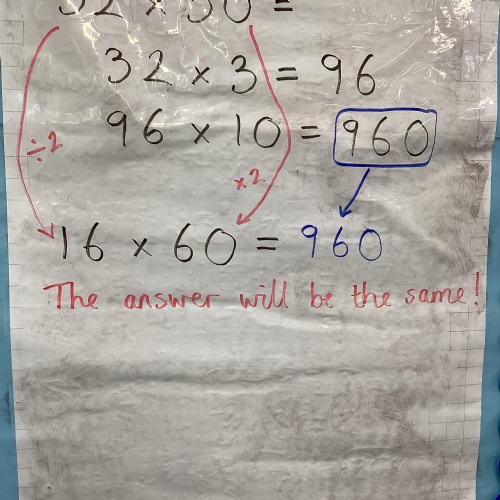 32 x 30 =
32 x 3 = 96
96 x 10 = 960
÷2
x2
16 x 60 = 960
The answer will be the same!